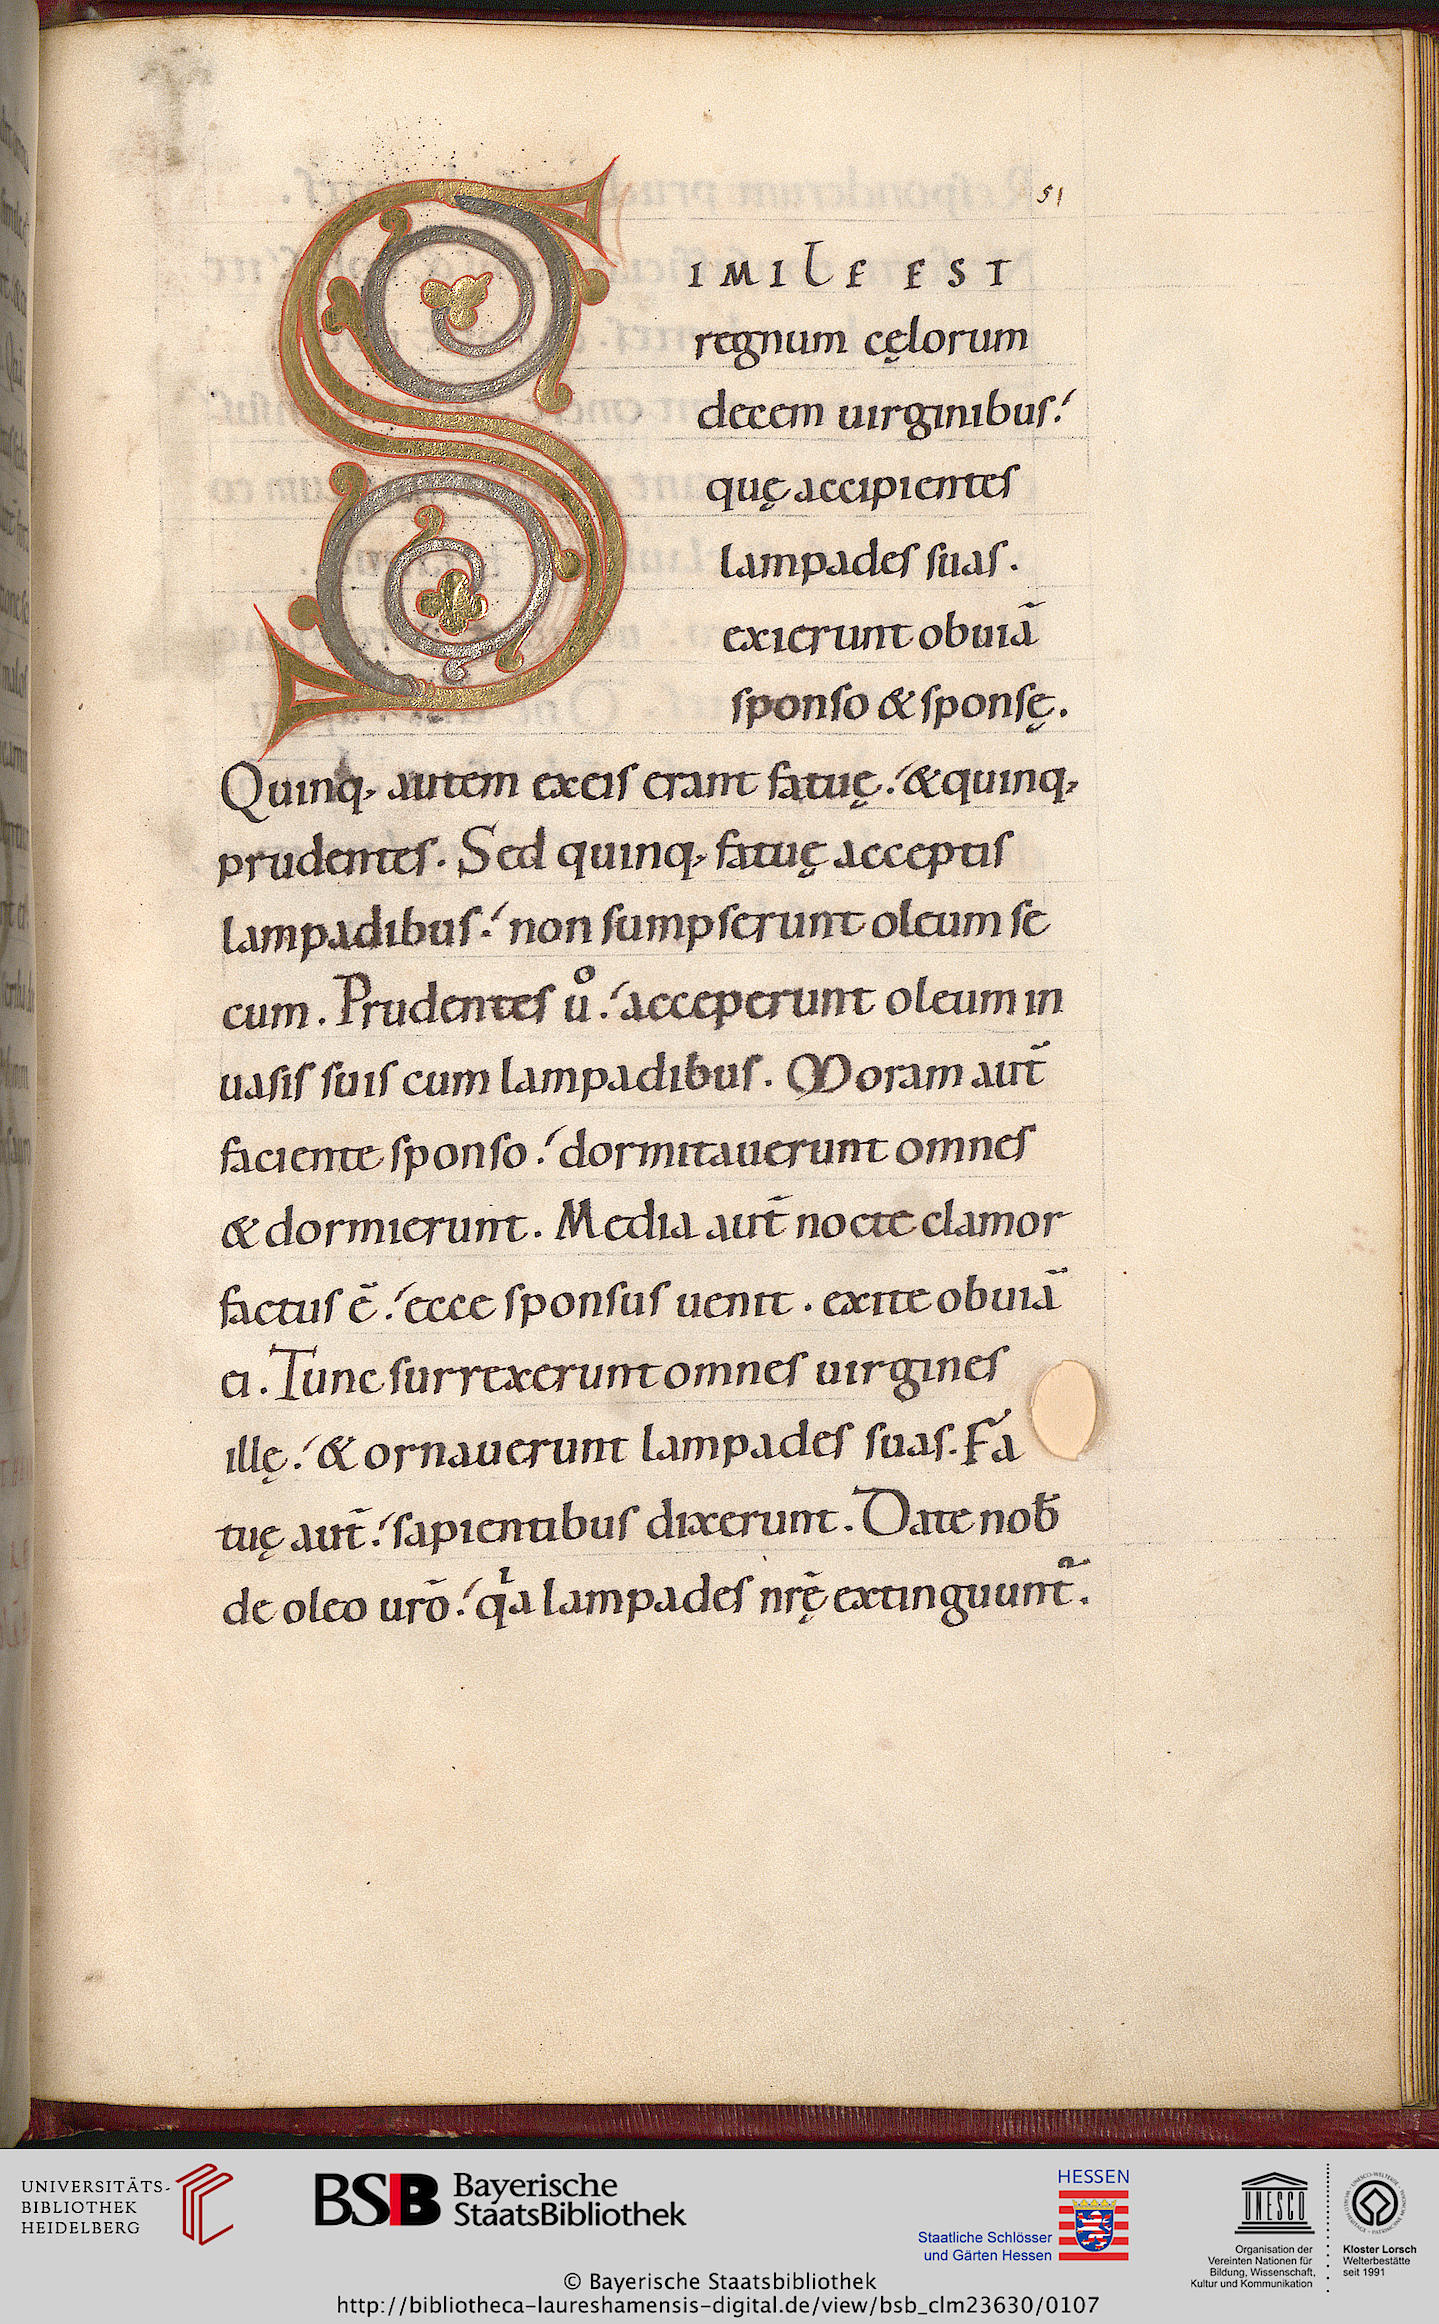 51
SIMILE EST
regnum cęlorum
decem uirginibus.
quę accipientes
lampades suas.
exierunt obuiā
sponso & sponsę.
Quinq; autem exeis erant fatuę. & quinq;
prudentes. Sed quinq; fatuę acceptis
lampadibus. non sumpserunt oleum se
cum. Prudentes uͦ. acceperunt oleum in
uasis suis cum lampadibus. Moram aut̄
faciente sponso. dormitauerunt omnes
& dormierunt. Media aut̄ nocte clamor
factus ē. ecce sponsus uenit. exite obuiā
ei. Tunc surrexerunt omnes uirgines
illę. & ornauerunt lampades suas. Fa
tuę aut̄. sapientibus dixerunt. Date nob̄
de oleo urō. qͥa lampades nrę̄ extinguunt᷑.
UNIVERSITÄTS-
BIBLIOTHEK
HEIDELBERG
BSB Bayerische
StaatsBibliothek
HESSEN
Staatliche Schlösser
und Gärten Hessen
UNESCO
Organisation der
Vereinten Nationen für
Bildung, Wissenschaft,
Kultur und Kommunikation
Kloster Lorsch
Welterbestätte
seit 1991
© Bayerische Staatsbibliothek
http://bibliotheca-laureshamensis-digital.de/view/bsb_clm23630/0107